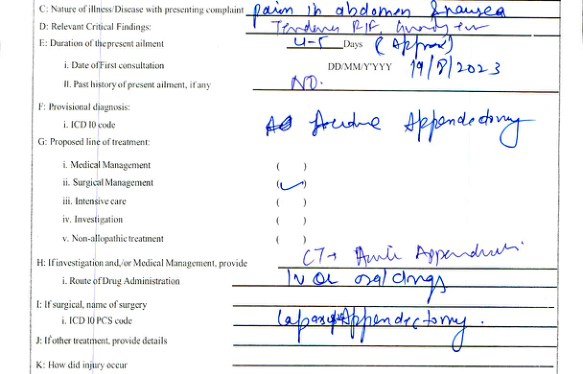 C: Nature of illness/Disease with presenting complaint pain in abdomen & nausea
D: Relevant Critical Findings: Tender RIF,
E: Duration of the present ailment 4-5 Days (Approx)
i. Date of First consultation DD/MM/YYYY 19/8/2023
II. Past history of present ailment, if any NO.
F: Provisional diagnosis:
i. ICD 10 code Appendectomy
G: Proposed line of treatment:
i. Medical Management ( )
ii. Surgical Management (✓)
iii. Intensive care ( )
iv. Investigation ( )
v. Non-allopathic treatment ( )
H: If investigation and,/or Medical Management, provide CT →
i. Route of Drug Administration IV or oral drugs
I: If surgical, name of surgery
i. ICD 10 PCS code Appendectomy.
J: If other treatment, provide details
K: How did injury occur